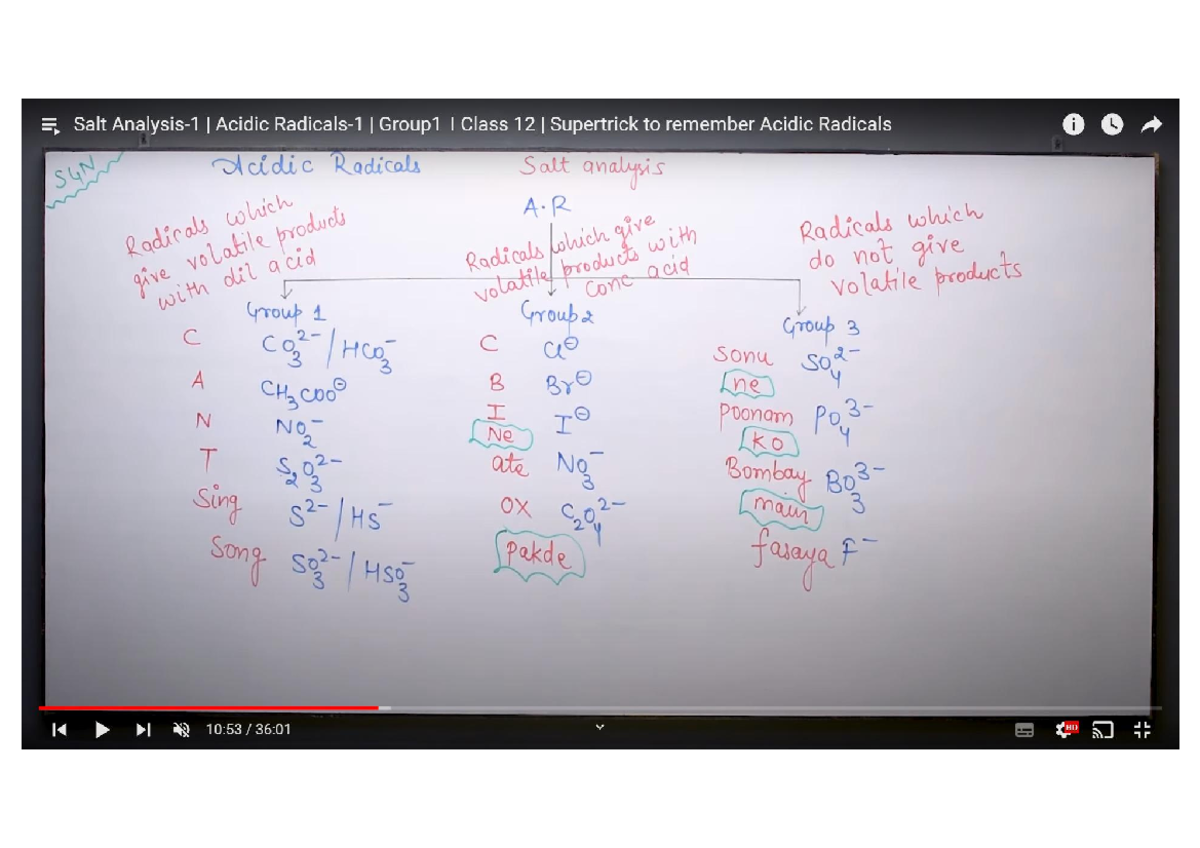 Salt Analysis-1 | Acidic Radicals-1 | Group1 I Class 12 | Supertrick to remember Acidic Radicals
S4N
Acidic Radicals Salt analysis
A.R
Radicals which
give volatile products
with dil acid
Radicals which give
volatile products with
conc acid
Radicals which
do not give
volatile products
Group 1
C CO₃²⁻ / HCO₃⁻
A CH₃COO⊖
N NO₂⁻
T S₂O₃²⁻
Sing S²⁻ / HS⁻
Song SO₃²⁻ / HSO₃⁻
Group 2
C Cl⊖
B Br⊖
I I⊖
Ne
ate NO₃⁻
OX C₂O₄²⁻
Pakde
Group 3
Sonu SO₄²⁻
ne
Poonam PO₄³⁻
ko
Bombay BO₃³⁻
main
fasaya F⁻
10:53 / 36:01
HD